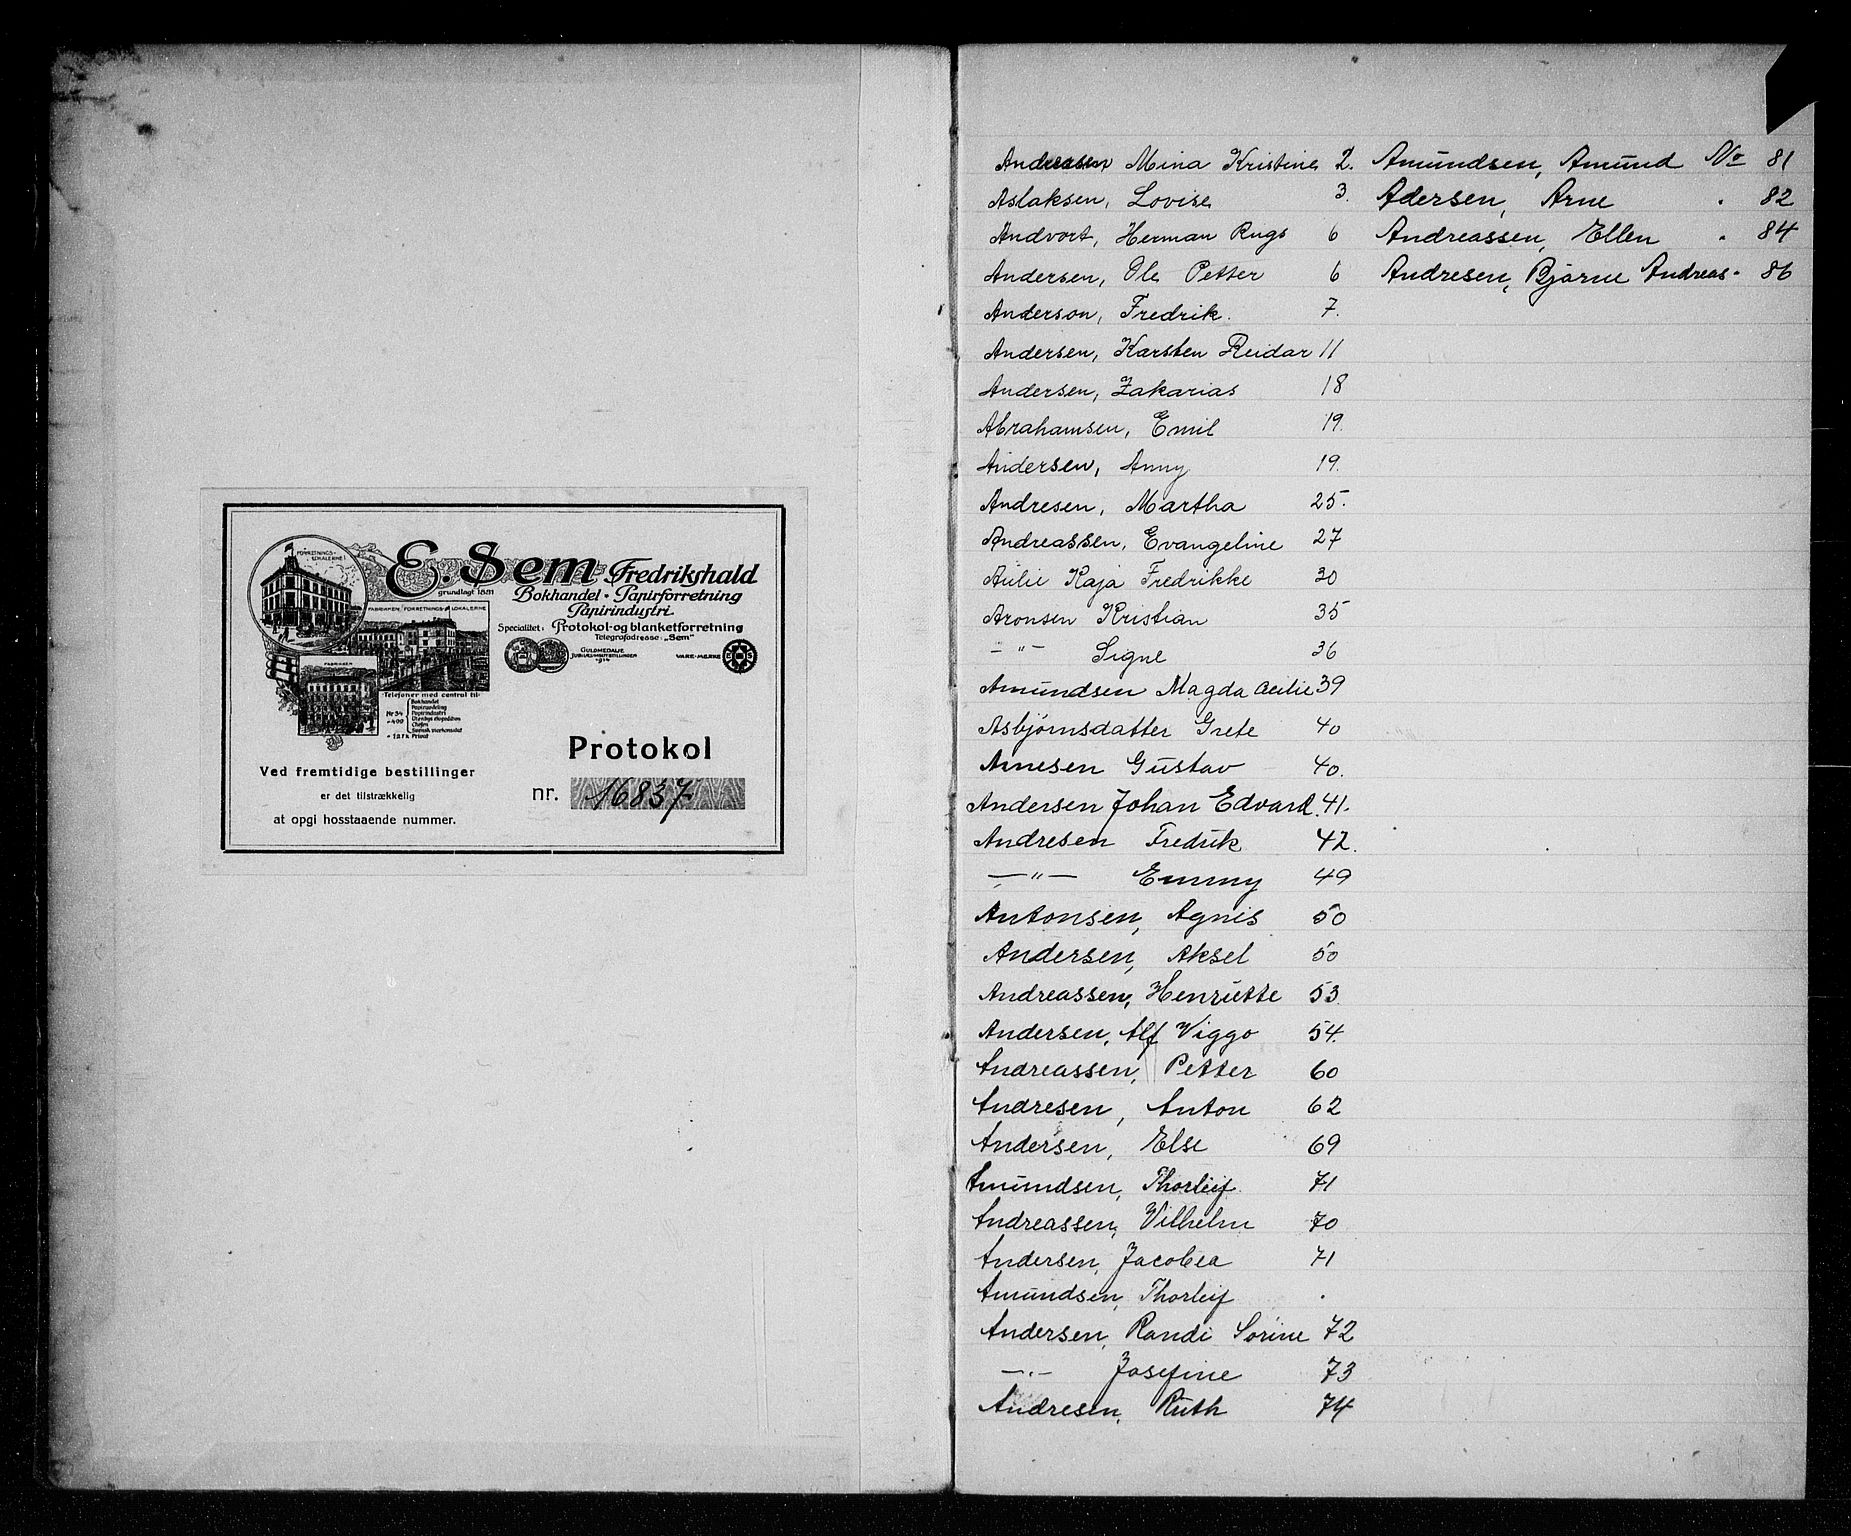 FORRETNINGS-
LOKALERNE
E. Sem Fredrikshald
grundlagt 1881
Bokhandel • Papirforretning
Papirindustri
FABRIKEN, FORRETNINGS-LOKALERNE
Specialitet: Protokol-og blanketforretning
Telegrafadresse: „Sem"
GULDMEDALJE
JUBILÆUMSUTSTILLINGEN
1914
VARE-MERKE
FABRIKEN
Telefoner med central til
Bokhandel
Papirindustri
Privat
Protokol
Ved fremtidige bestillinger
er det tilstrækkelig
at opgi hosstaaende nummer.
nr. 16837
Andreasen Mina Kristine 2.
Aslaksen, Lovise 3.
Andvort, Herman Rugs 6
Andersen, Ole Petter 6
Anderson, Fredrik. 7.
Andersen, Karsten Reidar 11
Andersen, Zakarias 18
Abrahamsen, Emil 19.
Andersen, Anny 19.
Andresen, Martha 25.
Andreassen, Evangeline 27
Aulie Kaja Fredrikke 30
Aronsen Kristian 35
- " - Signe 36
Amundsen Magda Cecilie 39
Asbjørnsdatter Grete 40
Arnesen Gustav 40.
Andersen Johan Edvard. 41.
Andresen Fredrik 42.
— " — Emmy 49
Antonsen, Agnes 50
Andersen, Aksel 50
Andreassen, Henriette 53
Andersen, Alf Viggo 54.
Andreassen, Petter 60
Andresen, Anton 62
Andersen, Else 69
Amundsen, Thorleif 71
Andreassen, Vilhelm 70
Andersen, Jacobea 71
Amundsen, Thorleif .
Andersen, Randi Sørine 72
— " — Josefine 73
Andresen, Ruth 74
Amundsen, Amund No 81
Adersen, Arne " 82
Andreassen, Ellen " 84
Andresen, Bjarne Andreas " 86